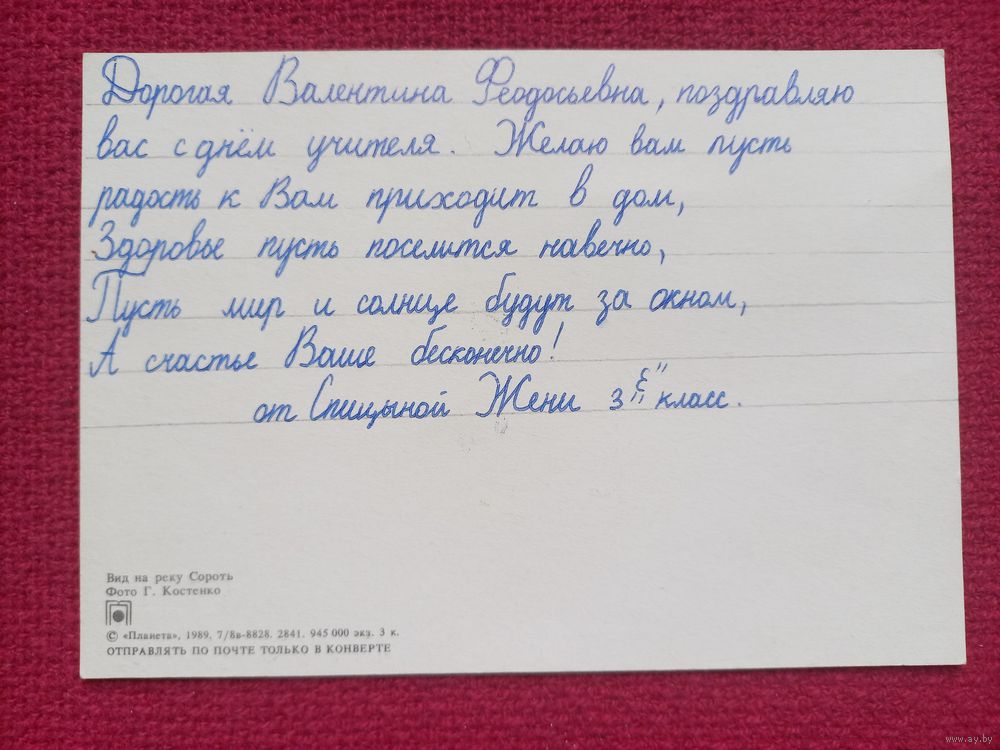 Дорогая Валентина Феодосьевна, поздравляю
вас с днём учителя. Желаю вам пусть
радость к Вам приходит в дом,
Здоровье пусть поселится навечно,
Пусть мир и солнце будут за окном,
А счастье Ваше бесконечно!
от Спицыной Жени 3 класс.
Вид на реку Сороть
Фото Г. Костенко
© «Планета», 1989, 7/8в-8828. 2841. 945 000 экз. 3 к.
ОТПРАВЛЯТЬ ПО ПОЧТЕ ТОЛЬКО В КОНВЕРТЕ
www.ay.by